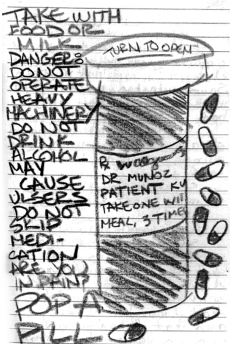 TAKE WITH
FOOD OR
MILK
DANGERS
DO NOT
OPERATE
HEAVY
MACHINERY
DO NOT
DRINK
ALCOHOL
MAY
CAUSE
ULSERS
DO NOT
SLIP
MEDI-
CATION
ARE YOU
IN PAIN?
POP A
PILL
TURN TO OPEN
DR MUNOZ
PATIENT KU
TAKE ONE WI
MEAL, 3 TIMES